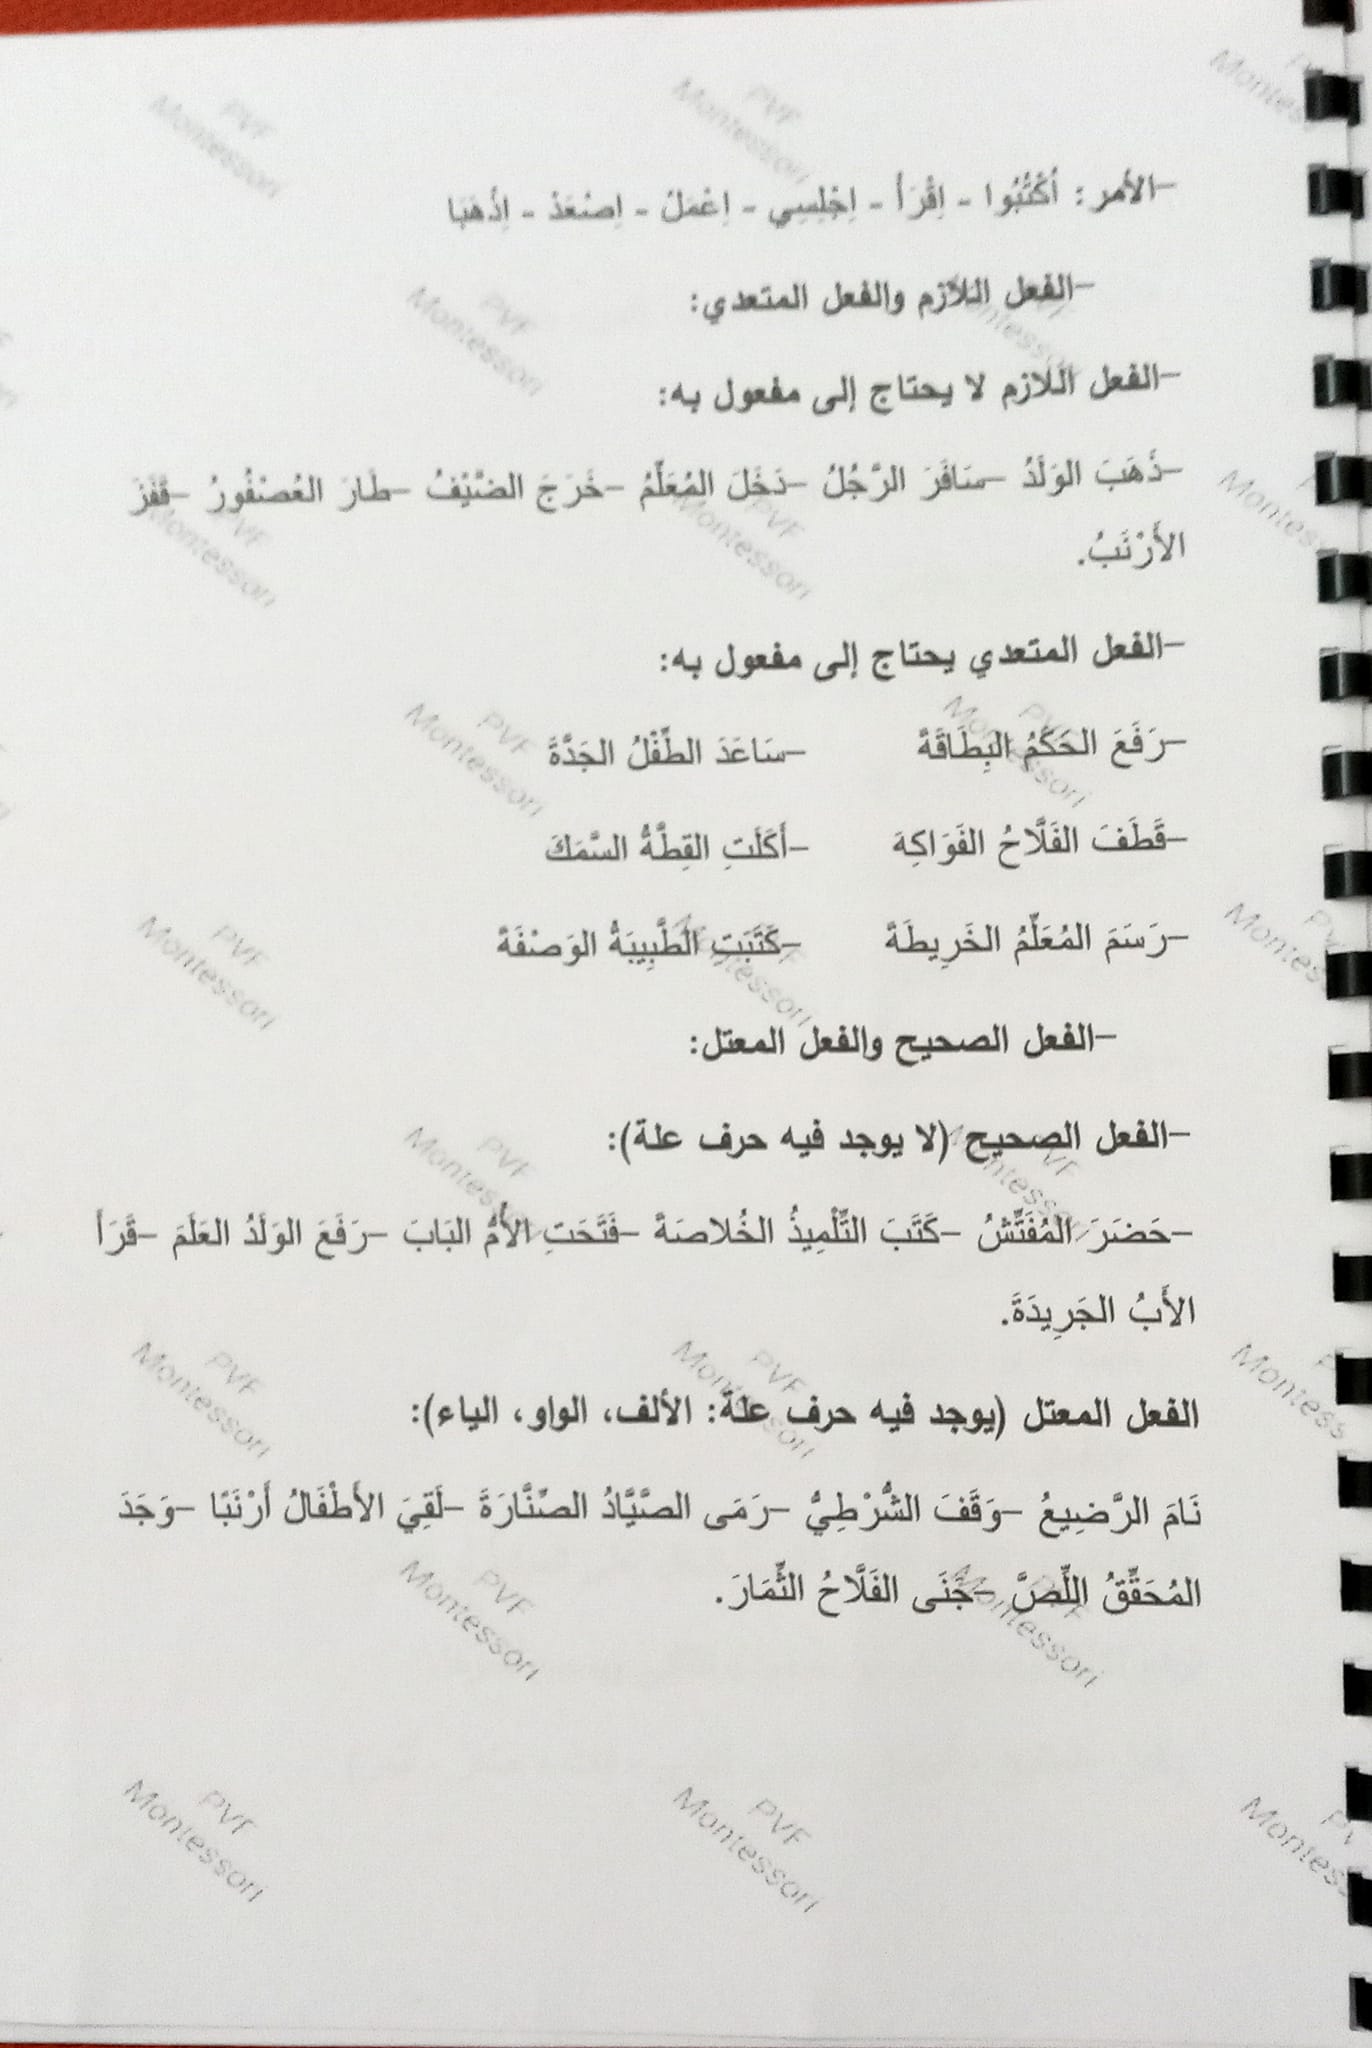 -الأمر: اُكْتُبُوا - اِقْرَأْ - اِجْلِسِي - اِعْمَلْ - اِصْعَدْ - اِذْهَبَا
-الفعل اللازم والفعل المتعدي:
-الفعل اللازم لا يحتاج إلى مفعول به:
-ذَهَبَ الوَلَدُ -سَافَرَ الرَّجُلُ -دَخَلَ المُعَلِّمُ -خَرَجَ الضَّيْفُ -طَارَ العُصْفُورُ -قَفَزَ
الأَرْنَبُ.
-الفعل المتعدي يحتاج إلى مفعول به:
-رَفَعَ الحَكَمُ البِطَاقَةَ -سَاعَدَ الطِّفْلُ الجَدَّةَ
-قَطَفَ الفَلَّاحُ الفَوَاكِهَ -أَكَلَتِ القِطَّةُ السَّمَكَ
-رَسَمَ المُعَلِّمُ الخَرِيطَةَ -كَتَبَتِ الطَّبِيبَةُ الوَصْفَةَ
-الفعل الصحيح والفعل المعتل:
-الفعل الصحيح (لا يوجد فيه حرف علة):
-حَضَرَ المُفَتِّشُ -كَتَبَ التِّلْمِيذُ الخُلاصَةَ -فَتَحَتِ الأُمُّ البَابَ -رَفَعَ الوَلَدُ العَلَمَ -قَرَأَ
الأَبُ الجَرِيدَةَ.
الفعل المعتل (يوجد فيه حرف علة: الألف، الواو، الياء):
نَامَ الرَّضِيعُ -وَقَفَ الشُّرْطِيُّ -رَمَى الصَّيَّادُ الصِّنَّارَةَ -لَقِيَ الأَطْفَالُ أَرْنَبًا -وَجَدَ
المُحَقِّقُ اللِّصَّ -جَنَى الفَلَّاحُ الثِّمَارَ.
PVF
Montessori